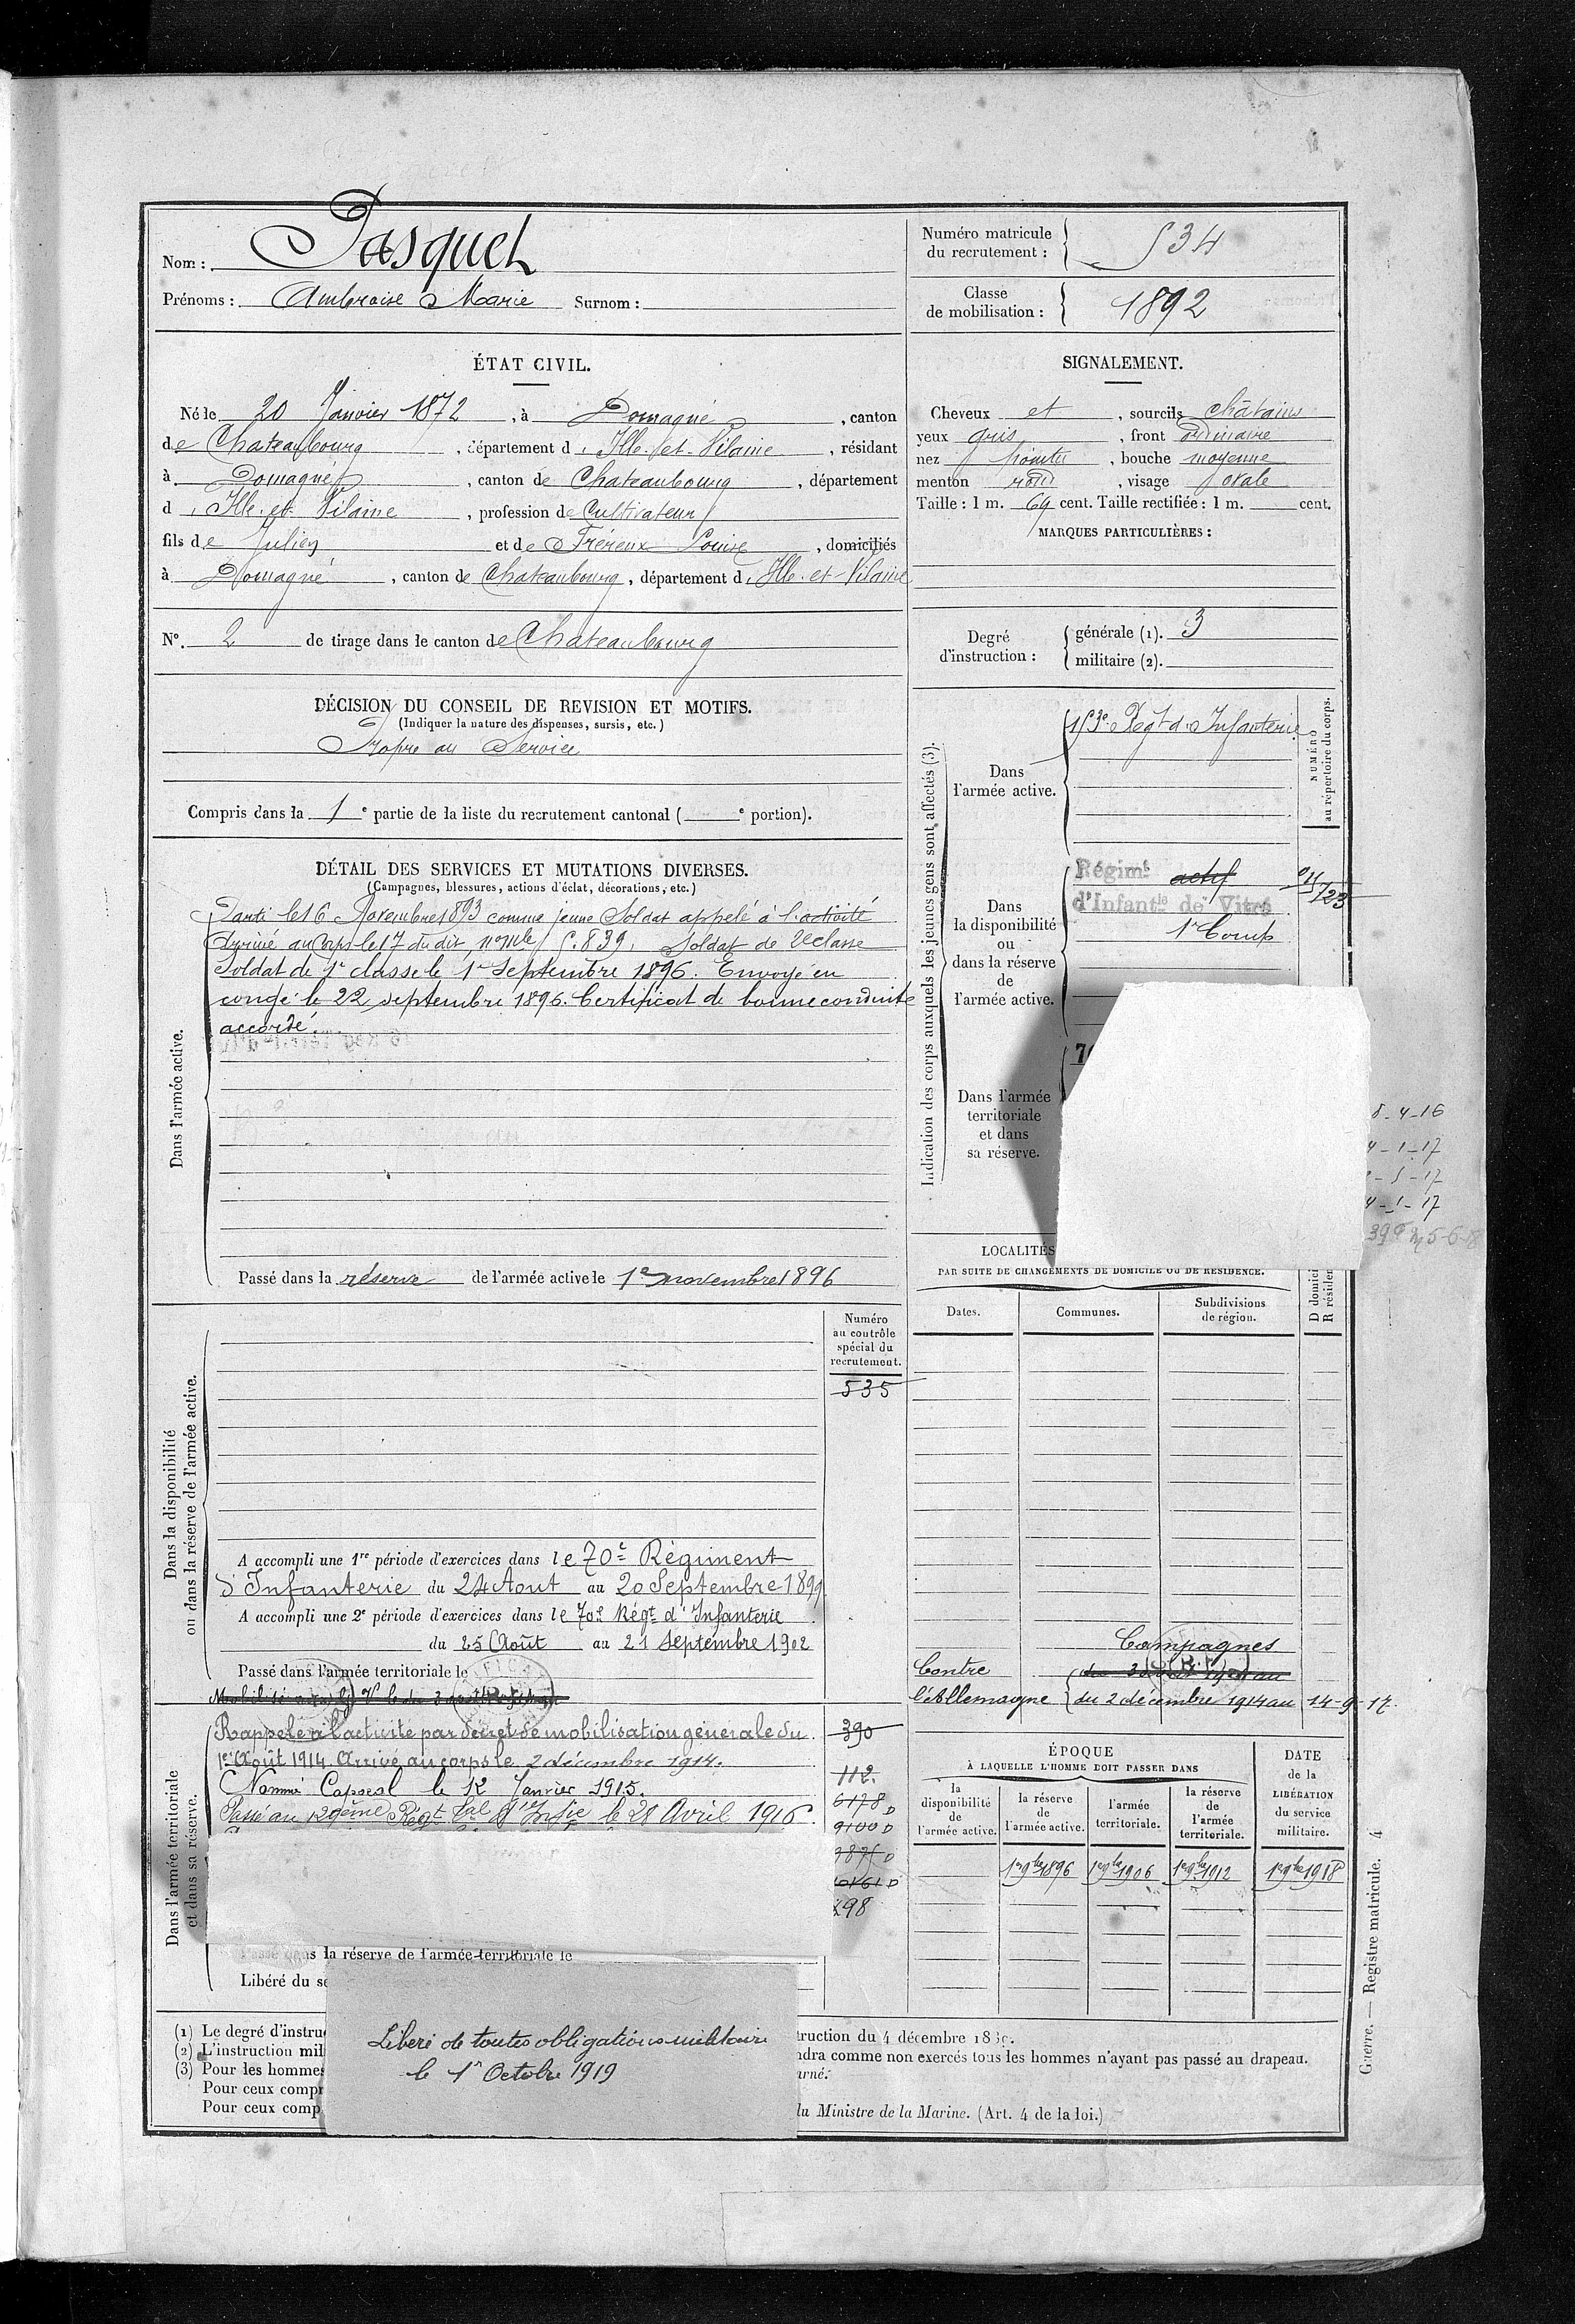 Nom : Pasquet
Prénoms : Ambroise Marie Surnom :
Numéro matricule
du recrutement : 534
Classe
de mobilisation : 1892
ÉTAT CIVIL.
Né le 20 Janvier 1872, à Domagné, canton
de Chateaubourg, département d'Ille-et-Vilaine, résidant
à Domagné, canton de Chateaubourg, département
d'Ille-et-Vilaine, profession de Cultivateur
fils de Julien et de Louise, domiciliés
à Domagné, canton de Chateaubourg, département d'Ille-et-Vilaine
N°. 2 de tirage dans le canton de Chateaubourg
SIGNALEMENT.
Cheveux et, sourcils châtains
yeux gris, front ordinaire
nez pointu, bouche moyenne
menton rond, visage ovale
Taille : 1 m. 69 cent. Taille rectifiée : 1 m. cent.
MARQUES PARTICULIÈRES :
Degré
d'instruction :
générale (1). 3
militaire (2).
DÉCISION DU CONSEIL DE REVISION ET MOTIFS.
(Indiquer la nature des dispenses, sursis, etc.)
Propre au Service
Compris dans la 1e partie de la liste du recrutement cantonal ( e portion).
DÉTAIL DES SERVICES ET MUTATIONS DIVERSES.
(Campagnes, blessures, actions d'éclat, décorations, etc.)
Dans l'armée active.
Parti le 16 Novembre 1893 comme jeune Soldat appelé à l'activité
Arrivé au Corps le 17 du dit, n° mle 5.839. Soldat de 2e classe
Soldat de 1e classe le 1er Septembre 1896. Envoyé en
congé le 22 septembre 1896. Certificat de bonne conduite
accordé.
Passé dans la réserve de l'armée active le 1er novembre 1896
Indication des corps auxquels les jeunes gens sont affectés (3).
NUMÉRO
au répertoire du corps.
Dans
l'armée active.
153e Régt d'Infanterie
Dans
la disponibilité
ou
dans la réserve
de
l'armée active.
Régimt actif
d'Infantie de Vitré
1e Comp
Dans l'armée
territoriale
et dans
sa réserve.
8-4-16
4-1-17
-5-17
4-1-17
LOCALITÉS
PAR SUITE DE CHANGEMENTS DE DOMICILE OU DE RÉSIDENCE.
Dates.
Communes.
Subdivisions
de région.
D domici
R résiden
Dans la disponibilité
ou dans la réserve de l'armée active.
Numéro
au contrôle
spécial du
recrutement.
535
A accompli une 1re période d'exercices dans le 70e Régiment
d'Infanterie du 24 Aout au 20 Septembre 1899
A accompli une 2e période d'exercices dans le 70e Régt d'Infanterie
du 25 Août au 21 Septembre 1902
Passé dans l'armée territoriale le
Campagnes
Contre
l'Allemagne
du 2 décembre 1914 au 14-9-17.
Dans l'armée territoriale
et dans sa réserve.
Rappelé à l'activité par décret de mobilisation générale du
1er Août 1914. Arrivé au corps le 2 décembre 1914.
Nommé Caporal le 12 Janvier 1915.
Passé au 129ème Régt Tal d'Infie le 28 Avril 1916.
390
112.
6178 D
9100 D
9875 D
298
Passé dans la réserve de l'armée territoriale le
Libéré du se
Liberé de toutes obligations militaire
le 1er Octobre 1919
ÉPOQUE
À LAQUELLE L'HOMME DOIT PASSER DANS
la
disponibilité
de
l'armée active.
la réserve
de
l'armée active.
l'armée
territoriale.
la réserve
de
l'armée
territoriale.
DATE
de la
LIBÉRATION
du service
militaire.
1er 9bre 1896
1er 9bre 1906
1er 9bre 1912
1er 9bre 1918
(1) Le degré d'instru
truction du 4 décembre 18
(2) L'instruction mil
ndra comme non exercés tous les hommes n'ayant pas passé au drapeau.
(3) Pour les hommes
urné.
Pour ceux compr
Pour ceux comp
du Ministre de la Marine. (Art. 4 de la loi.)
Guerre. — Registre matricule. 4